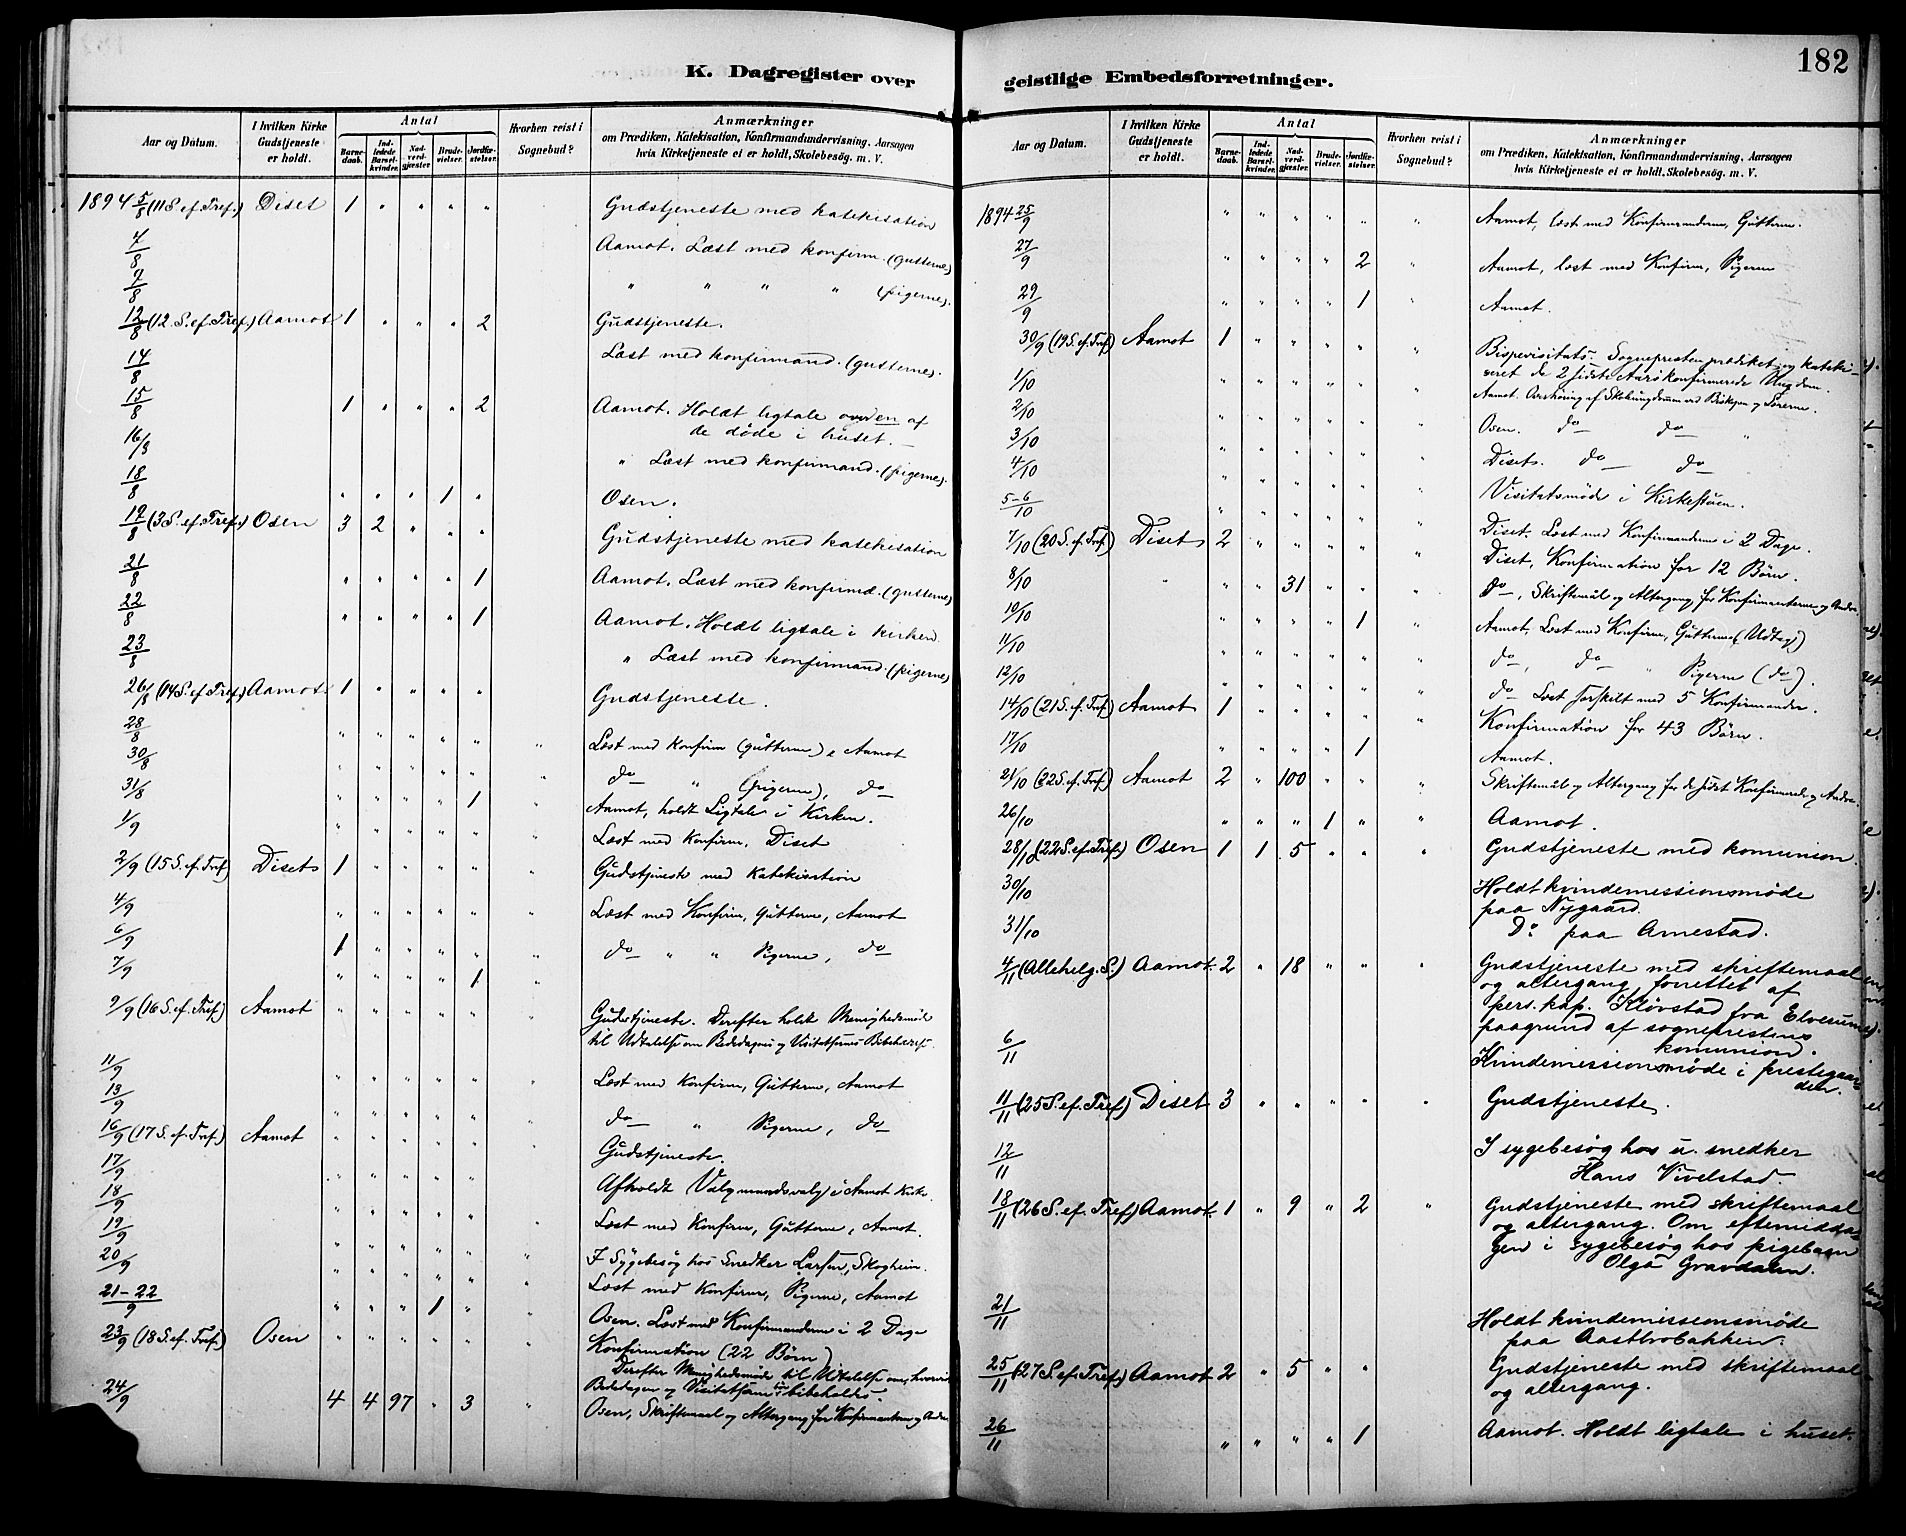 182
K. Dagregister over
Aar og Datum.
I hvilken Kirke Gudstjeneste er holdt.
Antal
Barnedaab.
Indledede Barselkvinder.
Nadverdgjester.
Brudevielser.
Jordfæstelser.
Hvorhen reist i Sognebud?
Anmærkninger
om Prædiken, Katekisation, Konfirmandundervisning, Aarsagen
hvis Kirketjeneste ei er holdt, Skolebesøg. m. V.
1894 5/8 (11 S. ef. Tref.) Diset 1 " " " " Gudstjeneste med katekisation
7/8 Aamot. Læst med konfirm. (gutterne)
9/8 " " " " (pigerne).
12/8 (12. S. ef. Tref.) Aamot 1 " " " 2 Gudstjeneste.
14/8 Læst med konfirmand. (gutterne).
15/8 1 " " " 2 Aamot. Holdt ligtale over en af
de døde i huset. —
16/8 " Læst med konfirmand. (pigerne).
18/8 " " " 1 " Osen.
19/8 (3 S. ef. Tref.) Osen 3 2 " " " Gudstjeneste med katekisation
21/8 " " " " 1 Aamot. Læst med konfirmd. (gutterne)
22/8 " " " " 1 Aamot. Holdt ligtale i kirken.
23/8 " Læst med konfirmand. (pigerne)
26/8 (14 S. ef. Tref.) Aamot. 1 " " " " Gudstjeneste.
28/8 " " " " " " Læst med Konfirm (gutterne) i Aamot
30/8 " " " " " " do " (pigerne), do
31/8 " " " " 1 " Aamot, holdt Ligtale i Kirken.
1/9 " " " " " " Læst med Konfirm. Diset
2/9 (15 S. ef. Tref) Diset 1 " " " " " Gudstjeneste med Katekisation
4/9 " " " " " " Læst med Konfirm, Gutterne, Aamot
6/9 1 " " " " " do " " Pigerne, do
7/9 " " " " 1 "
9/9 (16 S. ef. Tref) Aamot " " " " " " Gudstjeneste. Derefter holdt Menighedsmøde
til Udtalelse om Bededagens og Visitatsernes Bibeholdelse.
11/9 " " " " " " Læst med Konfirm, Gutterne, Aamot
13/9 " " " " " " do " Pigerne, do
16/9 (17 S. ef. Tref.) Aamot " " " " " Gudstjeneste.
17/9 " " " " " Afholdt Valgmandsvalg i Aamot Kirke.
18/9 " " " " " " Læst med Konfirm, Gutterne, Aamot.
19/9 " " " " " " I Sygebesøg hos Snedker Larsen, Skogheim.
20/9 " " " " " " Læst med Konfirm, Pigerne, Aamot
21-22/9 " " " 1 " " Osen. Læst med Konfirmanderne i 2 Dage
23/9 (18 S. ef. Tref.) Osen " " " " " " Konfirmation (22 Børn)
Derefter Menighedsmøde til Udtalelse om, hvorvidt
Bededagen og Visitatserne bibeholdes.
24/9 4 4 97 " 3 " Osen, Skriftemaal og Altergang for Konfirmanterne og Andre
geistlige Embedsforretninger.
Aar og Datum.
I hvilken Kirke Gudstjeneste er holdt.
Antal
Barnedaab.
Indledede Barselkvinder.
Nadverdgjester.
Brudevielser.
Jordfæstelser.
Hvorhen reist i Sognebud?
Anmærkninger
om Prædiken, Katekisation, Konfirmandundervisning, Aarsagen
hvis Kirketjeneste ei er holdt, Skolebesøg. m. V.
1894 25/9 " " " " " " Aamot, læst med Konfirmanderne, Gutterne.
27/9 " " " " 2 " Aamot, læst med Konfirm, Pigerne
29/9 " " " " 1 " Aamot.
30/9 (19 S. ef. Tref) Aamot 1 " " " " " Bispevisitats. Sognepresten prædiket og kateki-
seret de 2 sidste Aars konfirmerede Ungdom.
1/10 " " " " " " Aamot. Overhøring af Skoleungdommen ved Biskopen og Lærerne.
2/10 " " " " " " Osen. do do "
3/10 " " " " " " Diset. do do
4/10 " " " " " " Visitatsmøde i Kirkestuen.
5-6/10 " " " " " " Diset. Læst med Konfirmanderne i 2 Dage.
7/10 (20 S. ef. Tref) Diset 2 " " " " " Diset, Konfirmation for 12 Børn.
8/10 " " " 31 " " " do, Skriftemål og Altergang for Konfirmanterne og Andre
10/10 " " " " 1 " Aamot, Læst med Konfirm, Gutterne (Udtog)
11/10 " " " " " " do, do " Pigerne (do).
12/10 " " " " " " do Læst særskilt med 5 Konfirmander.
14/10 (21 S. ef. Tref.) Aamot 1 " " " " " Konfirmation for 43 Børn.
17/10 " " " " 1 Aamot.
21/10 (22 S. ef. Tref) Aamot 2 " 100 " " " Skriftemål og Altergang for de sidst Konfirmerede og Andre.
26/10 " " " 1 " " Aamot.
28/10 (22 S. ef. Tref.) Osen 1 1 5 " " " Gudstjeneste med komunion.
30/10 Holdt kvindemissionsmøde
paa Nygaard.
31/10 Do paa Arnestad.
4/11 (Allehelg. S.) Aamot. 2 " 18 " " " Gudstjeneste med skriftemaal
og altergang forrettet af
pers. kap. Kløvstad fra Elverum
paagrund af sogneprestens
komunion.
6/11 Kvindemissionsmøde i prestegaar-
den.
11/11 (25 S. ef. Tref.) Diset 3 " " " " " Gudstjeneste.
12/11 I sygebesøg hos u. snedker
Hans Vivelstad.
18/11 (26 S. ef. Tref) Aamot. 1 " 9 " 2 " Gudstjeneste med skriftemaal
og altergang. Om eftermidda-
gen i sygebesøg hos pigebarn
Olga Gravdalen.
21/11 Holdt kvindemissionsmøde
paa Aastbrobakken.
25/11 (27 S. ef. Tref.) Aamot 2 " 5 " " Gudstjeneste med skriftemaal
og altergang.
26/11 " " " " 1 Aamot. Holdt ligtale i huset.